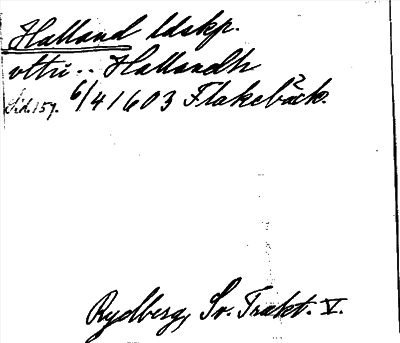 Halland ldskp.
vttri -- Hallandh
Sid. 157. 6/4 1603 Flakebäck.
Rydberg, Sv. Trakt. V.